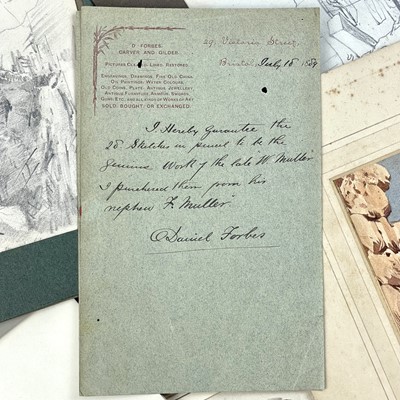 D. FORBES.
CARVER AND GILDER.
PICTURES CLEANED, LINED, RESTORED.
ENGRAVINGS, DRAWINGS, FINE OLD CHINA
OIL PAINTINGS, WATER COLOURS,
OLD COINS, PLATE, ANTIQUE JEWELLERY,
ANTIQUE FURNITURE, ARMOUR, SWORDS,
GUNS, ETC., AND ALL KINDS OF WORKS OF ART
SOLD, BOUGHT, OR EXCHANGED.
29, Victoria Street,
Bristol, July 15 1889
I Hereby Garantee the
28 Sketches in pencil to be the
genuine Work of the late W. Muller
I purchased them from his
nephew F. Muller.
Daniel Forbes